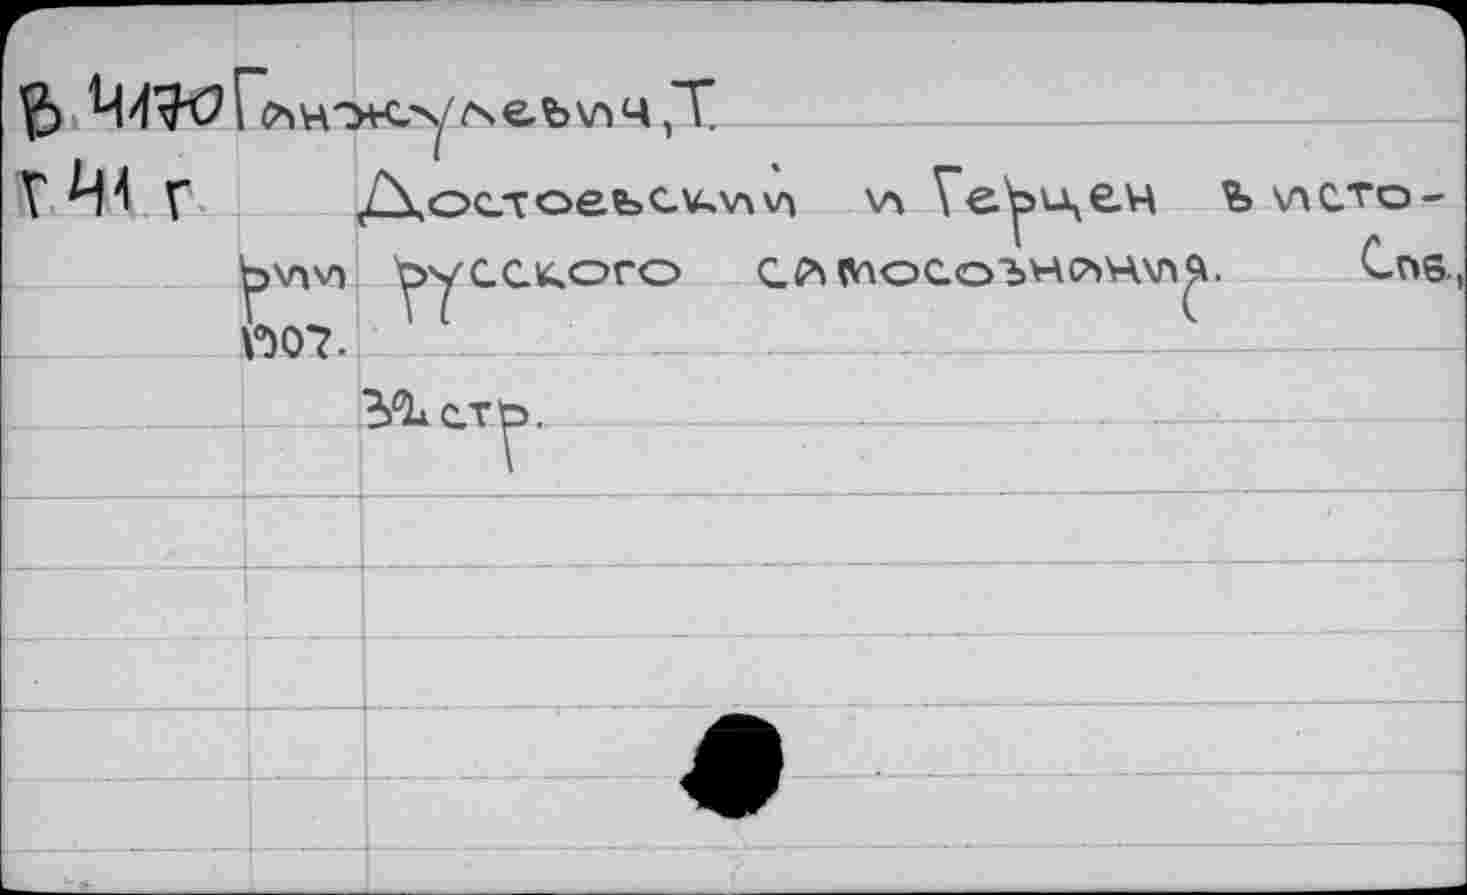 В 4170 Ганжулевич, Т.
Г 41 г Достоевский и Герцен в исто-
рии русского самосознания. Спб.,
1907.
32 стр.